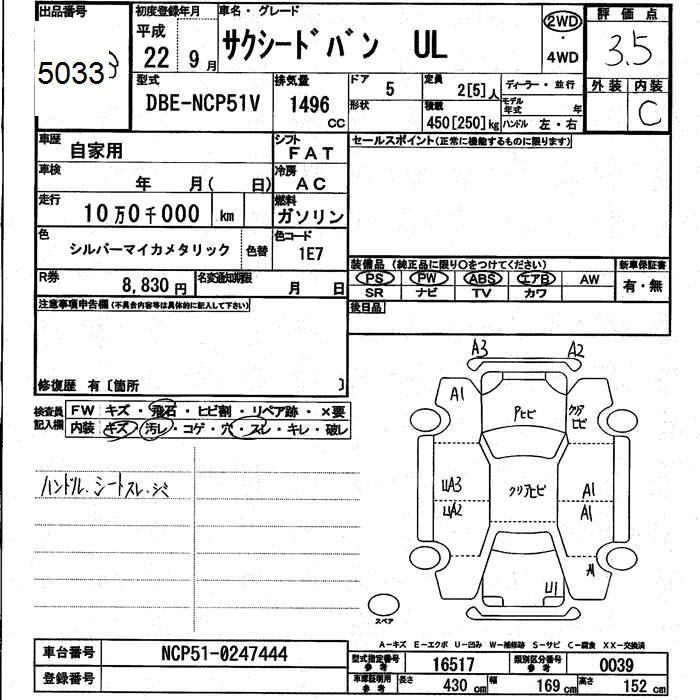 出品番号 初度登録年月 車名・グレード 評価点
50333
平成 22 9月 サクシードバン UL 2WD・4WD 3.5
型式 排気量 ドア 5 定員 2[5]人 ディーラー・並行 外装 内装
DBE-NCP51V 1496 CC 形状 積載 450[250]kg モデル年式 年 C
ハンドル 左・右
車歴 自家用 シフト FAT セールスポイント(正常に機能するものに限ります)
車検 年 月( 日) 冷房 AC
走行 10万0千000 km 燃料 ガソリン
色 シルバーマイカメタリック 色替 色コード 1E7
装備品 (純正品に限り○をつけてください) 新車保証書
R券 8,830円 名変通知期限 月 日 PS PW ABS エアB AW 有・無
SR ナビ TV カワ
注意事項申告欄(不具合内容等は具体的に記入して下さい) 後日品
修復歴 有〔箇所 〕
検査員記入欄 FW キズ・飛石・ヒビ割・リペア跡・×要
内装 キズ・汚レ・コゲ・穴・スレ・キレ・破レ
ハンドル・シートスレ・シミ
A3 A2
A1 Pヒビ クリアヒビ
UA3 クリアヒビ A1
UA2 A1
U1 A
スペア
A-キズ E-エクボ U-凹み W-補修跡 S-サビ C-腐食 XX-交換済
車台番号 NCP51-0247444 型式指定番号 参考 16517 類別区分番号 参考 0039
登録番号 車庫証明用 参考 長さ 430cm 幅 169cm 高さ 152cm